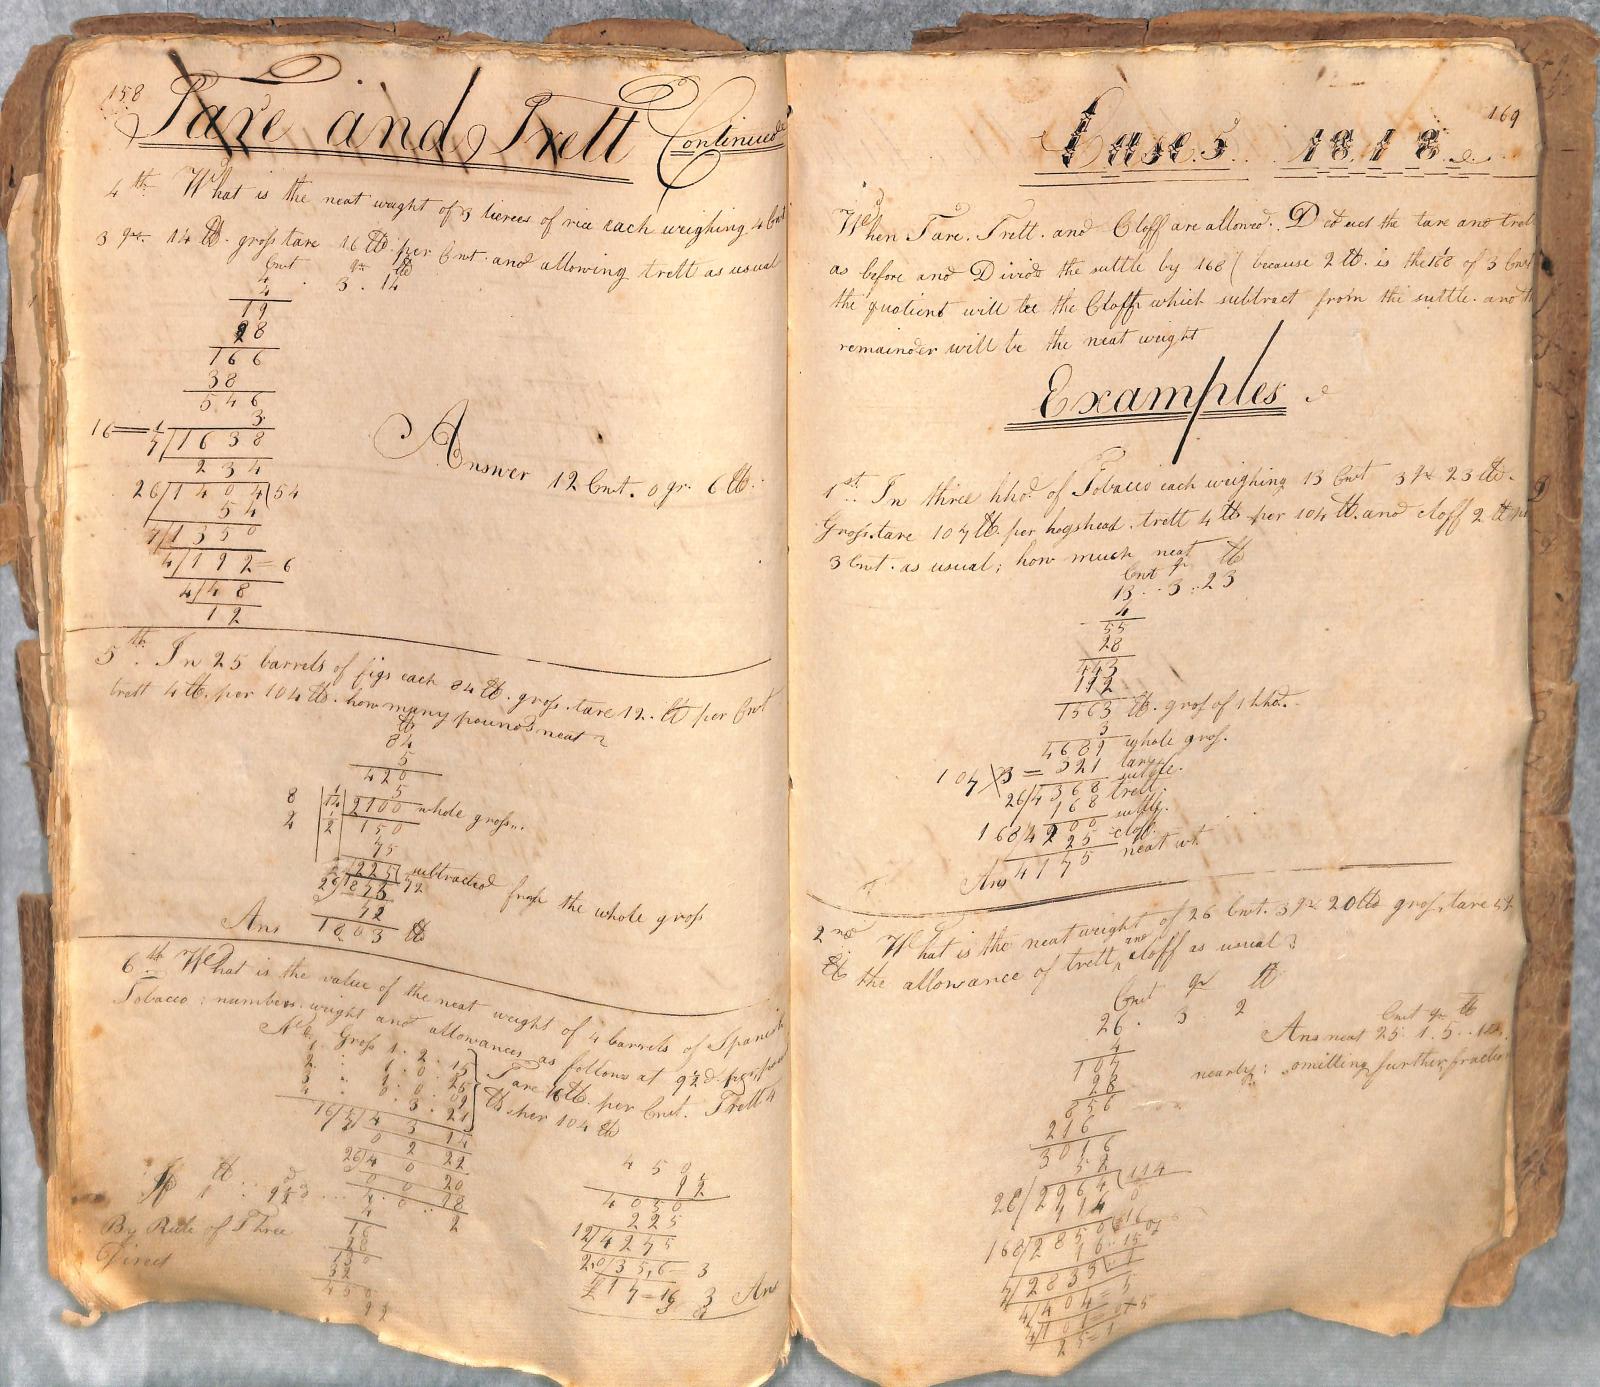 158
Tare and Trett Continued
4th What is the neat weight of 3 tierces of rice each weighing 4 Cwt
3 qr. 14 lb. gross tare 16 lb. per Cwt. and allowing trett as usual
Cwt qr lb
4 . 3 . 14
4
19
28
166
38
546
3
16 = 1/7 / 1638
234
26 / 1404 ( 54
54
7 / 1350
4 / 192 = 6
4 / 48
12
Answer 12 Cwt. 0 qr. 6 lb.
5th. In 25 barrels of figs each 84 lb. gross. tare 12. lb per Cwt
trett 4 lb. per 104 lb. how many pounds neat?
lb
84
5
420
5
8 1/14 2100 whole gross..
4 1/2 150
75
225 subtracted from the whole gross
26 / 1875 ( 72
72
Ans 1803 lb
6th What is the value of the neat weight of 4 barrels of Spanish
Tobacco; numbers, weight and allowances as follows at 9½d per pound
No. Gross 1. 2. 15
Tare 16 lb. per Cwt. Trett 4
lb per 104 lb
16 1/7 4 3 14
0 2 22
26 / 4 0 20
0 0 18
4. 0 .. 2
4
16
28
130
32
450
9½
lb d
1 9½
By Rule of Three
Direct
450
9½
4050
225
12 / 4275
20 / 35,6 = 3
£ 17 = 16 3 Ans
169
Case 5 1818
When Tare. Trett. and Cloff are allowed. Deduct the tare and tret
as before and Divide the suttle by 168 ( because 2 lb. is the 168 of 3 Cwt
the quotient will be the Cloff which subtract from the suttle. and th
remainder will be the neat weight
Examples
1st. In three hhd. of Tobacco each weighing 13 Cwt 3 qr 23 lb.
Gross. tare 107 lb. per hogshead. trett 4 lb per 104 lb. and cloff 2 lb per
3 Cwt. as usual; how much neat
Cwt qr lb
13 .. 3 : 23
4
55
28
443
112
1563 lb. gross of 1 hhd.
3
4689 whole gross.
107 X 3 = 321 tare
26 / 4368 suttle.
168 trett
168 / 4200 suttle.
25 cloff.
Ans 4175 neat wt.
2nd What is the neat weight of 26 Cwt. 3 qr 20 lb gross, tare 52
lb the allowance of trett and cloff as usual?
Cwt qr lb
26 . 3 2
4
107
28
856
216
3016
52
26 / 2964 ( 114
114 0
168 / 2850
16 . 15
7 / 2833
4 / 404 = 5
4 / 101
25 = 1
Cwt qr lb
Ans neat 25. 1. 5 ..
nearly; omitting further fractio